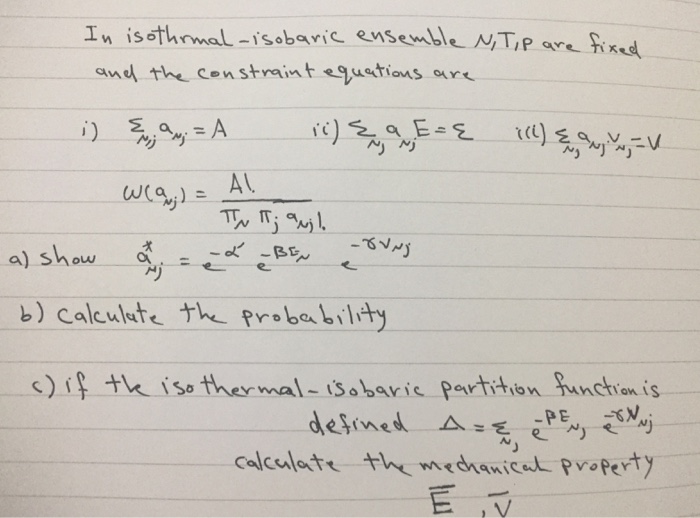 In isothrmal-isobaric ensemble N,T,P are fixed
and the constraint equations are
i) Σ_{Nj} a_{Nj} = A   ii) Σ_{Nj} a_{Nj} E = Ɛ   iii) Σ_{Nj} a_{Nj} V_{Nj} = V
W(a_{Nj}) = A! / π_N π_j a_{Nj}!
a) show a*_{Nj} = e^{-α'} e^{-βE_N} e^{-γV_{Nj}}
b) calculate the probability
c) if the isothermal-isobaric partition function is
defined Δ = Σ_{Nj} e^{-βE_{Nj}} e^{-γV_{Nj}}
calculate the mechanical property
E̅, V̅